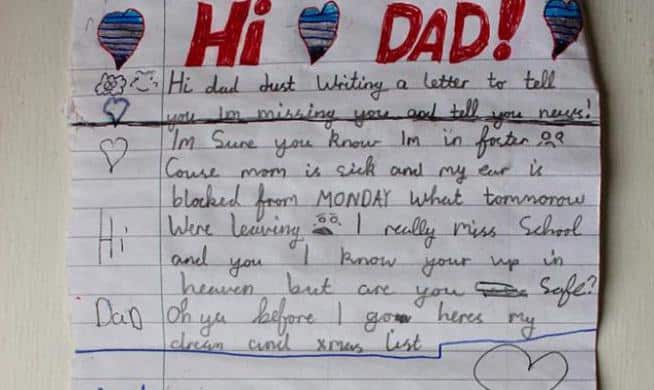 Hi DAD!
Hi dad Just Writing a letter to tell
you Im missing you and tell you news!
Im Sure you know Im in foster
Couse mom is sick and my ear is
blocked from MONDAY What tommorow
Hi
Were leaving I really miss School
and you I know your up in
heaven but are you Safe?
DaD
Oh ya before I go heres my
dream and xmas list